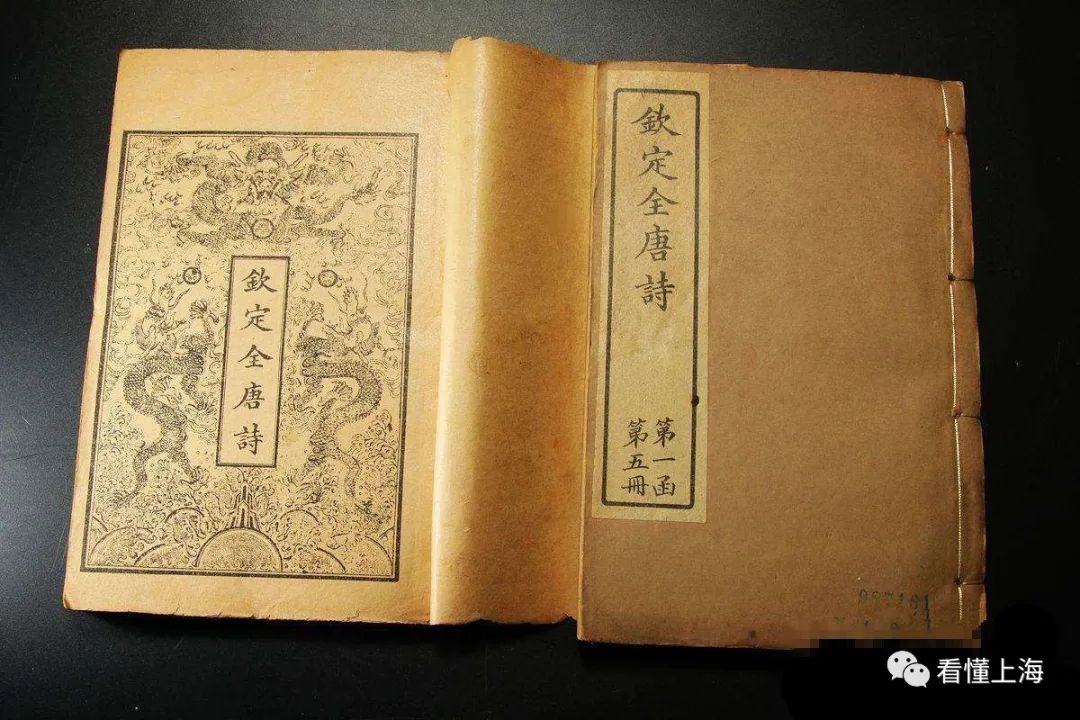 欽定全唐詩
欽定全唐詩
第一函
第五冊
看懂上海